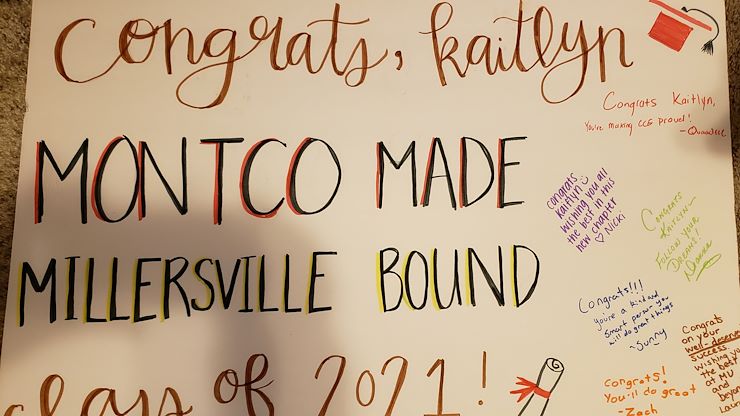 Congrats, kaitlyn
MONTCO MADE
MILLERSVILLE BOUND
class of 2021!
Congrats Kaitlyn,
You're making CCS proud!
congrats
kaitlyn
wishing you all
the best in this
new chapter
♡ Nicki
Congrats
Kaitlyn-
Follow your
Dreams!
Congrats!!!
you're a kind and
smart person you
will do great things
~Sunny
congrats!
You'll do great
-Zach
Congrats
on your
well-deserved
success.
wishing you
the best
at MU
and
beyond